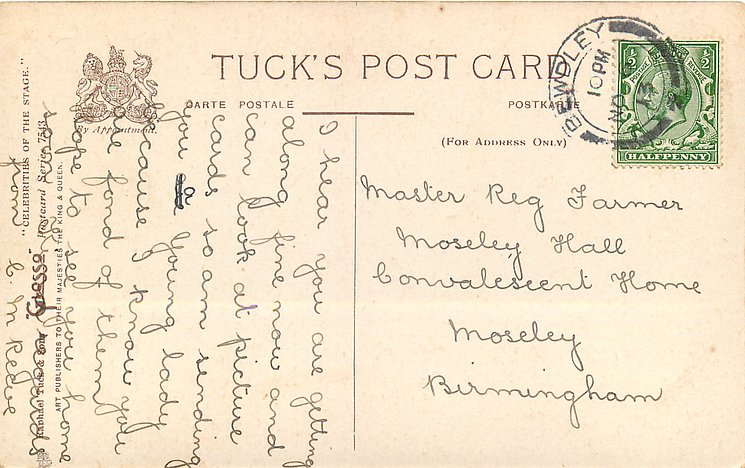 TUCK'S POST CARD
CARTE POSTALE
POSTKARTE
By Appointment.
(FOR ADDRESS ONLY)
BEWDLEY
10 PM
NO
13
½
½
POSTAGE
REVENUE
HALFPENNY
Master Reg Farmer
Moseley Hall
Convalescent Home
Moseley
Birmingham
I hear you are getting
along fine now and
can look at picture
cards so am sending
you a young lady
because I know you
are fond of them
hope to see you home
soon
from C. M Reeve
Raphael Tuck & Sons' "Glosso" Postcard Series 7543
"CELEBRITIES OF THE STAGE."
ART PUBLISHERS TO THEIR MAJESTIES THE KING & QUEEN.